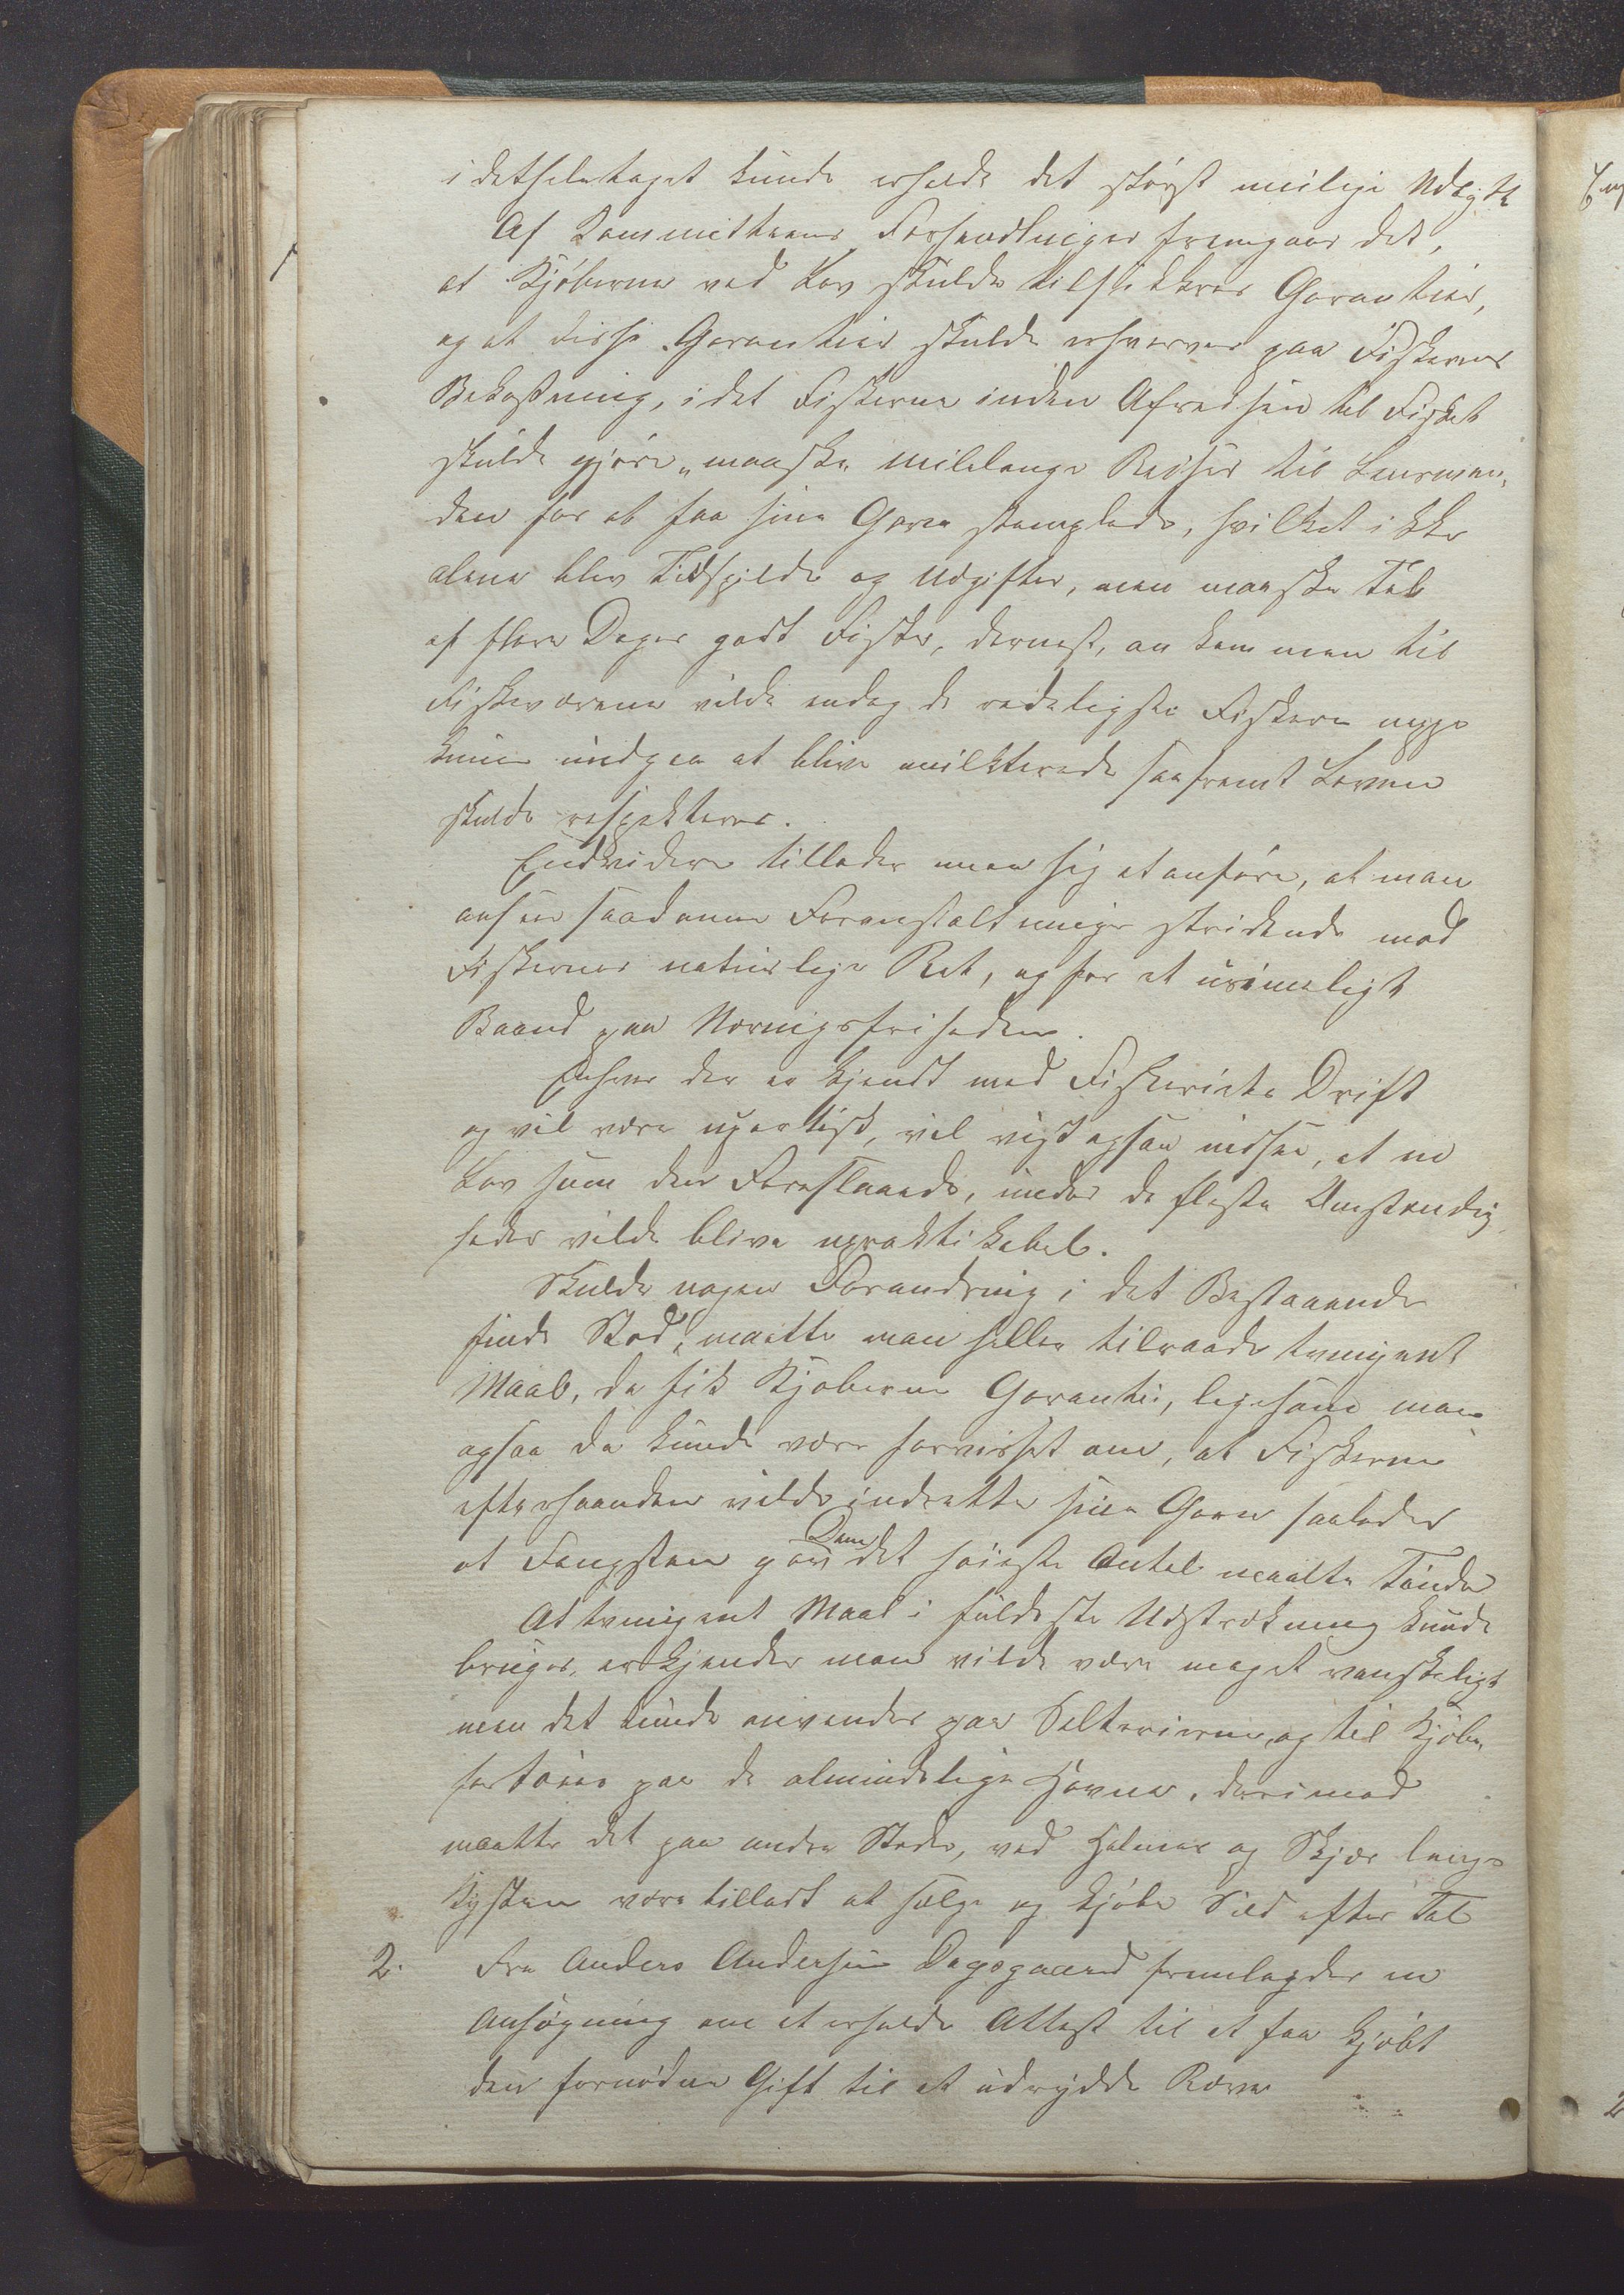 idethelataget kunde erholde det størst mulige Udbytte
Af Kommitteens Forhandlinger fremgaar det,
at Kjøberne ved Lov skulde tilsikkres Garantier,
og at disse Garantier skulde erhverves paa Fiskerens
Bekostning, idet Fiskerne inden Afreisen til Fisket
skulde gjøre, maaske milelange Reiser til Lensman-
den for at faa sine Garn stemplede, hvilket ikke
alene blev Tidsspilde og Udgifter, men maaske Tab
af flere Dages godt Fiske, dernæst, ankommen til
Fiskeværene vilde endog de redeligste Fiskere neppe
kunne undgaa at blive mulkterede saafremt Loven
skulde respekteres.
Endvidere tillader man sig at anføre, at man
anser saadanne Foranstaltninger stridende mod
Fiskernes naturlige Ret, og for et urimeligt
Baand paa Næringsfriheden.
Enhver der er kjendt med Fiskeriets Drift
og vil være upartisk, vil vist ogsaa indse, at en
Lov som den Foreslaaede, under de fleste Omstændig-
heder vilde blive upraktikabel.
Skulde nogen Forandring i det Bestaaende
finde Sted, maatte man heller tilraade tvungent
Maal, da fik Kjøberne Garanti, ligesom man
ogsaa da kunde være forvisset om, at Fiskerne
efterhaanden vilde indrette sine Garn saaledes
at Fangsten gav Dem det høieste Antal maalte Tønder
At tvungent Maal i fuldeste Udstrækning kunde
bruges, erkjender man vilde være meget vanskeligt
men det kunde anvendes paa Salterierne, og til Kjøbe-
fartøier paa de almindelige Havne, derimod
maatte det paa andre Steder, ved Holmer og Skjær langs
Kysten være tilladt at sælge og kjøbe Sild efter Tal
2. Fra Anders Andersen Dagsgaard fremlagdes en
Ansøgning om at erholde Attest til at faa kjøbt
den fornødne Gift til at udrydde Ræve